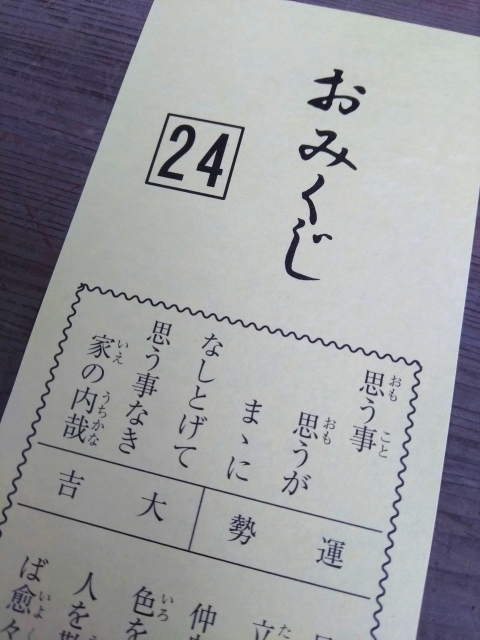 おみくじ
24
思う事
思うが
まゝに
なしとげて
思う事なき
家の内哉
運勢
大吉
立
仲
色を
人を
ば愈々